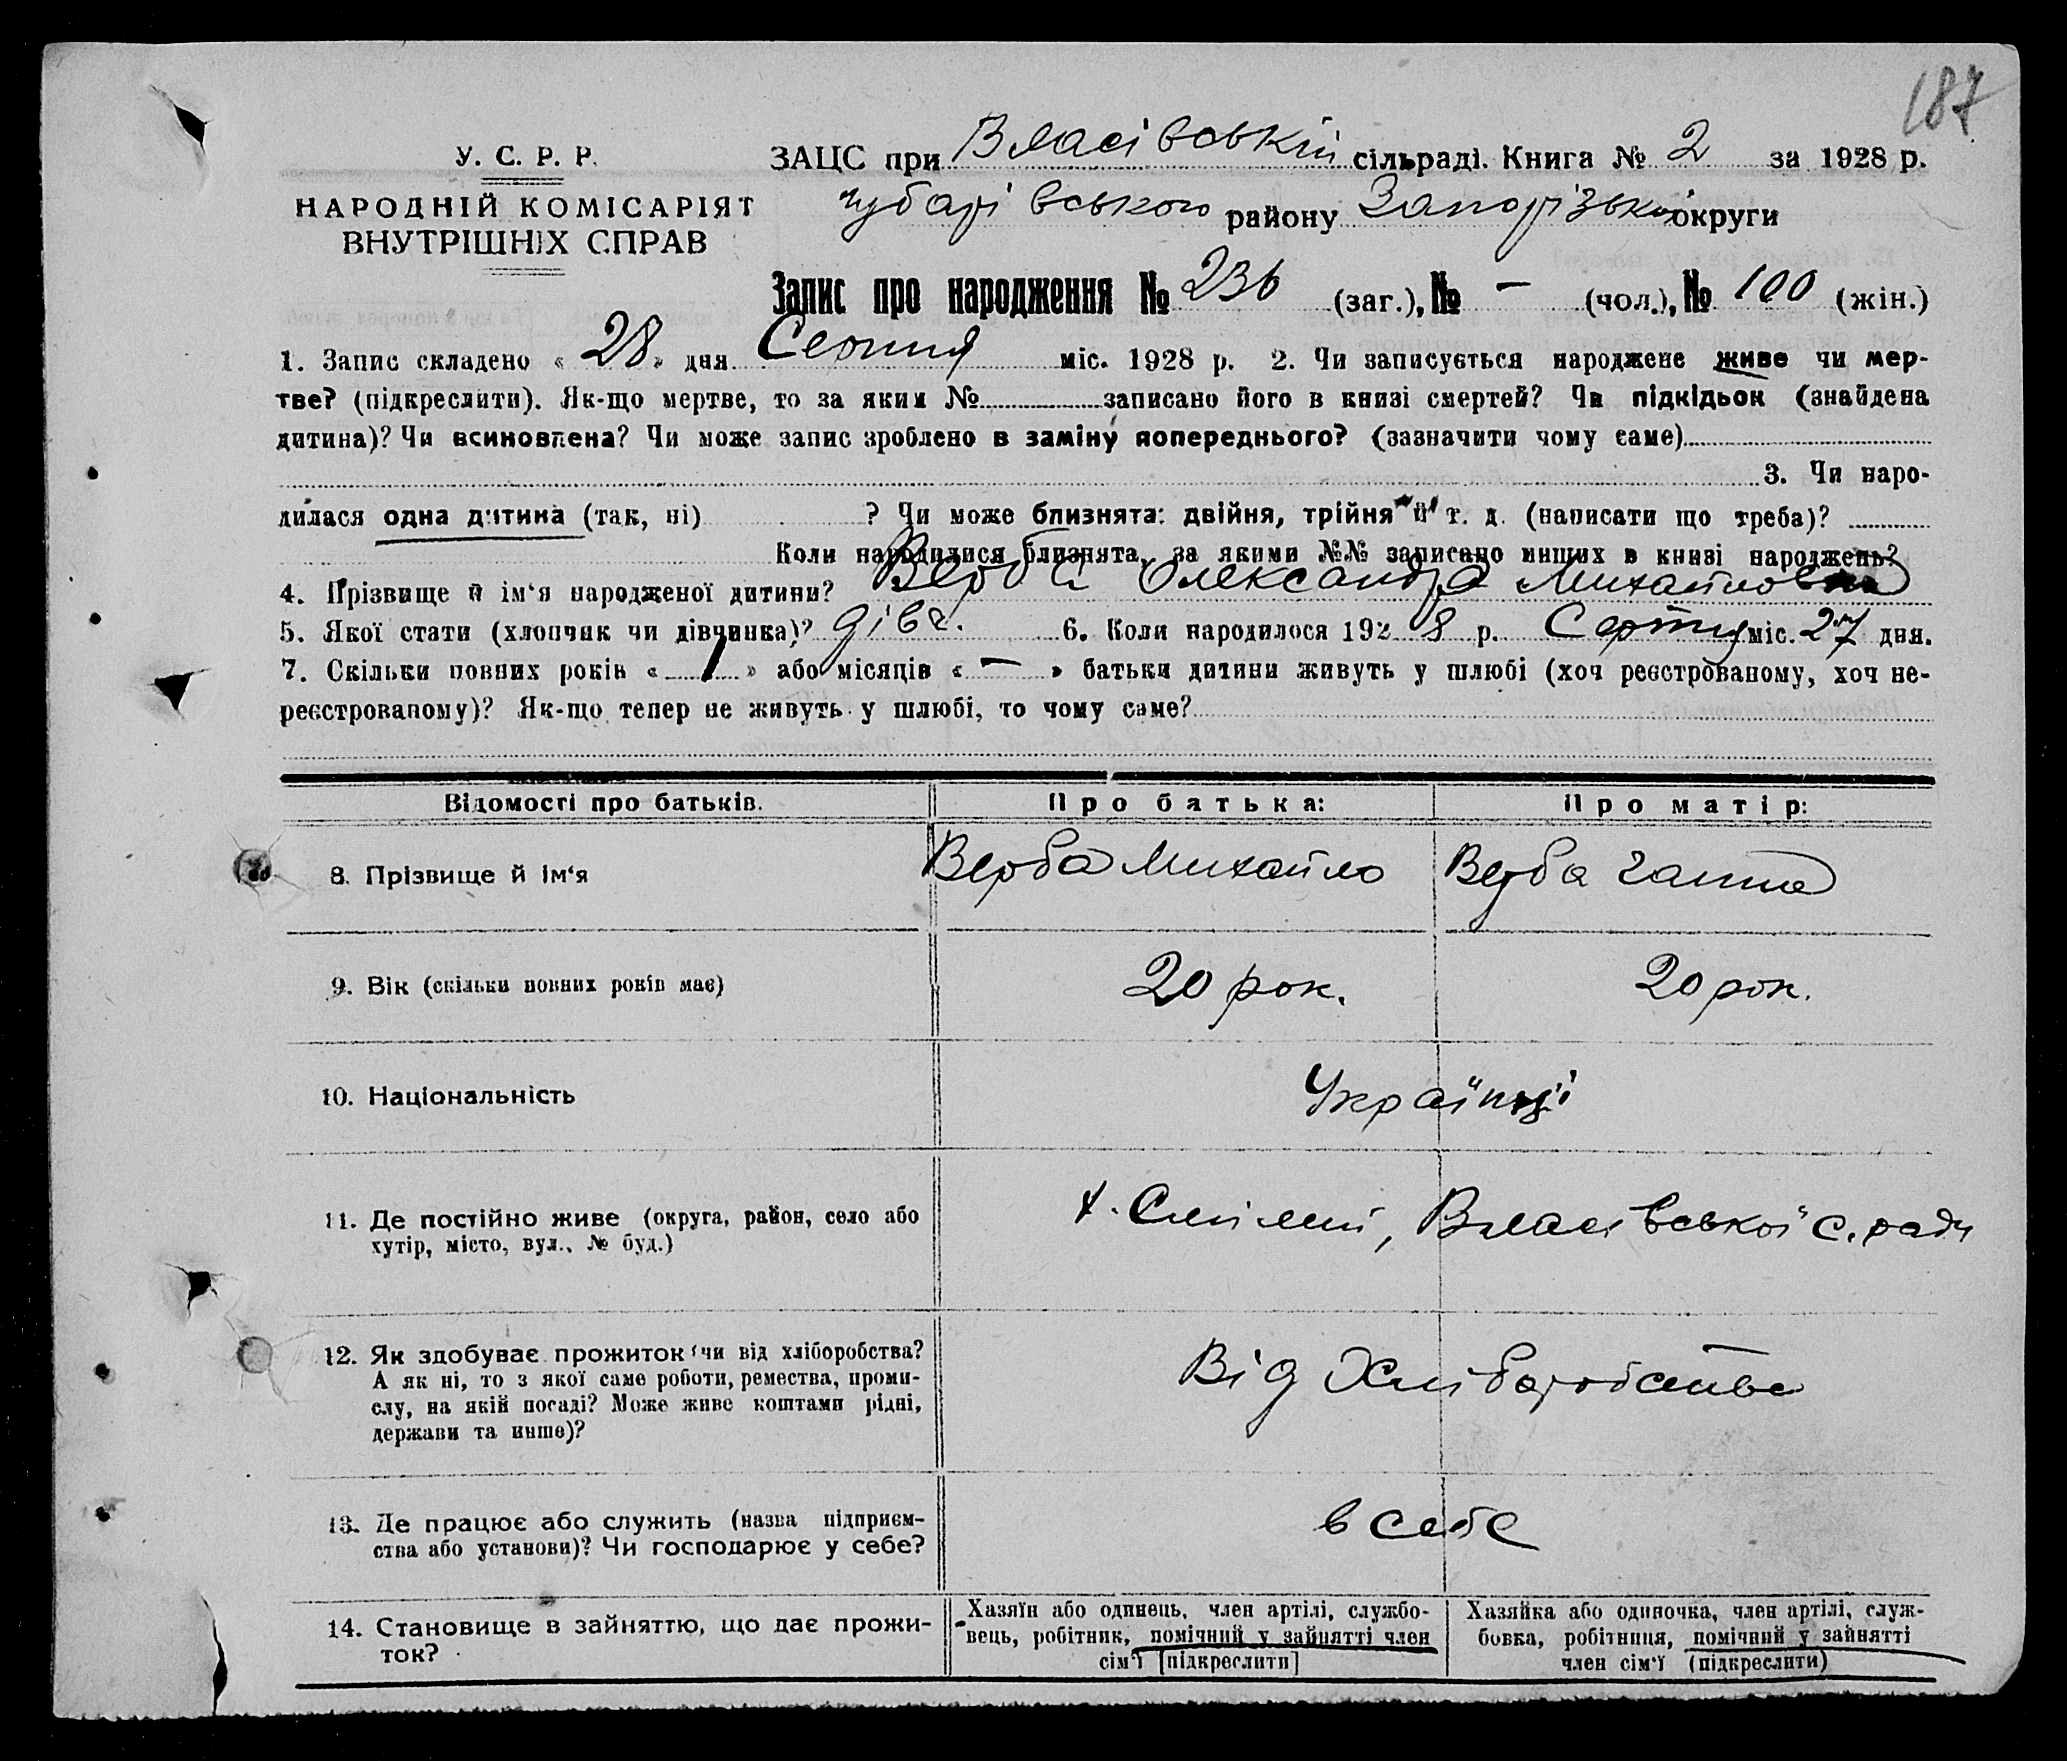 187
У. С. Р. Р.
НАРОДНІЙ КОМІСАРІЯТ
ВНУТРІШНІХ СПРАВ
ЗАЦС при Власівській сільраді. Книга № 2 за 1928 р.
Чубарівського району Запорізької округи
Запис про народження № 236 (заг.), № – (чол.), № 100 (жін.)
1. Запис складено « 28 » дня Серпня міс. 1928 р. 2. Чи записується народжене живе чи мер-
тве? (підкреслити). Як-що мертве, то за яким № записано його в книзі смертей? Чи підкідьок (знайдена
дитина)? Чи всиновлена? Чи може запис зроблено в заміну попереднього? (зазначити чому саме)
3. Чи наро-
дилася одна дитина (так, ні) ? Чи може близнята: двійня, трійня й т. д. (написати що треба)?
Коли народилися близнята, за якими №№ записано инших в книзі народжень?
4. Прізвище й ім‘я народженої дитини? Верба Олександра Михайловна
5. Якої стати (хлопчик чи дівчинка)? дівч. 6. Коли народилося 192 8 р. Серпня міс. 27 дня.
7. Скільки повних років « 1 » або місяців « – » батьки дитини живуть у шлюбі (хоч реєстрованому, хоч не-
реєстрованому)? Як-що тепер не живуть у шлюбі, то чому саме?
Відомості про батьків. Про батька: Про матір:
8. Прізвище й ім‘я Верба Михайло Верба Ганна
9. Вік (скільки повних років має) 20 рок. 20 рок.
10. Національність Українці
11. Де постійно живе (округа, район, село або
хутір, місто, вул., № буд.)
х. Смілий, Власівської с. ради
12. Як здобуває прожиток (чи від хліборобства?
А як ні, то з якої саме роботи, ремества, проми-
слу, на якій посаді? Може живе коштами рідні,
держави та инше)?
Від Хліборобства
13. Де працює або служить (назва підприєм-
ства або установи)? Чи господарює у себе?
в себе
14. Становище в зайняттю, що дає прожи-
ток?
Хазяїн або одинець, член артілі, службо-
вець, робітник, помічний у зайнятті член
сім‘ї [підкреслити]
Хазяйка або одиночка, член артілі, служ-
бовка, робітниця, помічний у зайнятті
член сім‘ї (підкреслити)